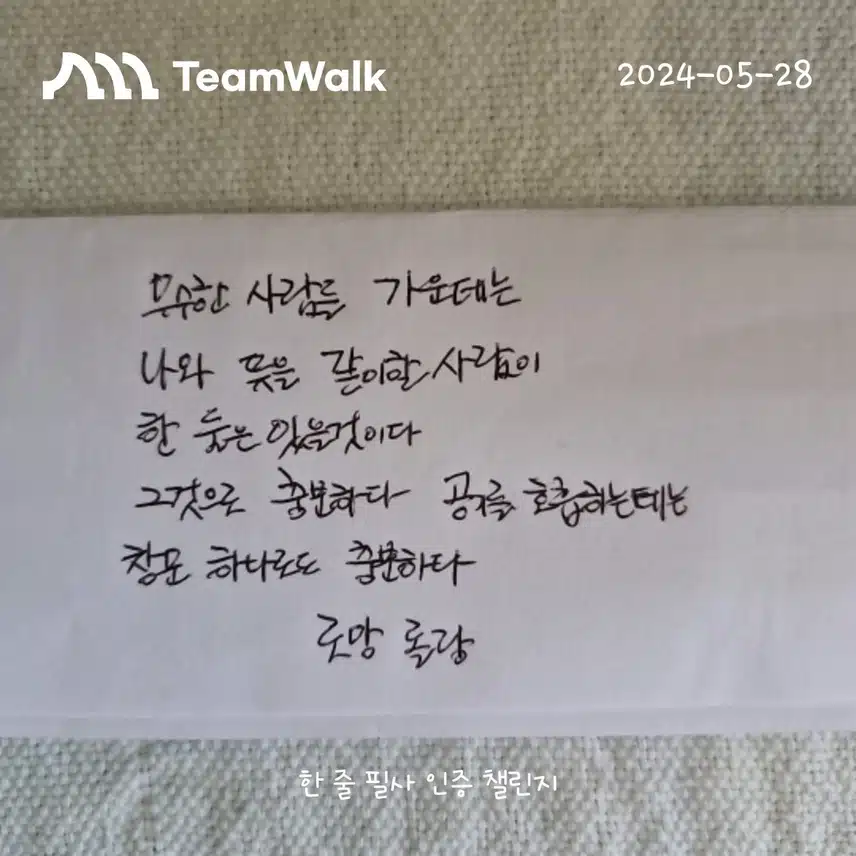 TeamWalk
2024-05-28
무수한 사람들 가운데는
나와 뜻을 같이할 사람이
한 둘은 있을것이다
그것으로 충분하다 공기를 호흡하는데는
창문 하나로도 충분하다
로망 롤랑
한 줄 필사 인증 챌린지